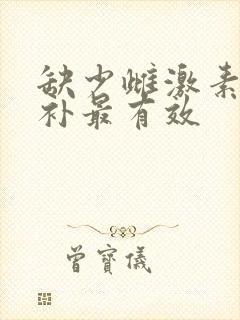 缺少雌激素
补最有效
曾寶儀